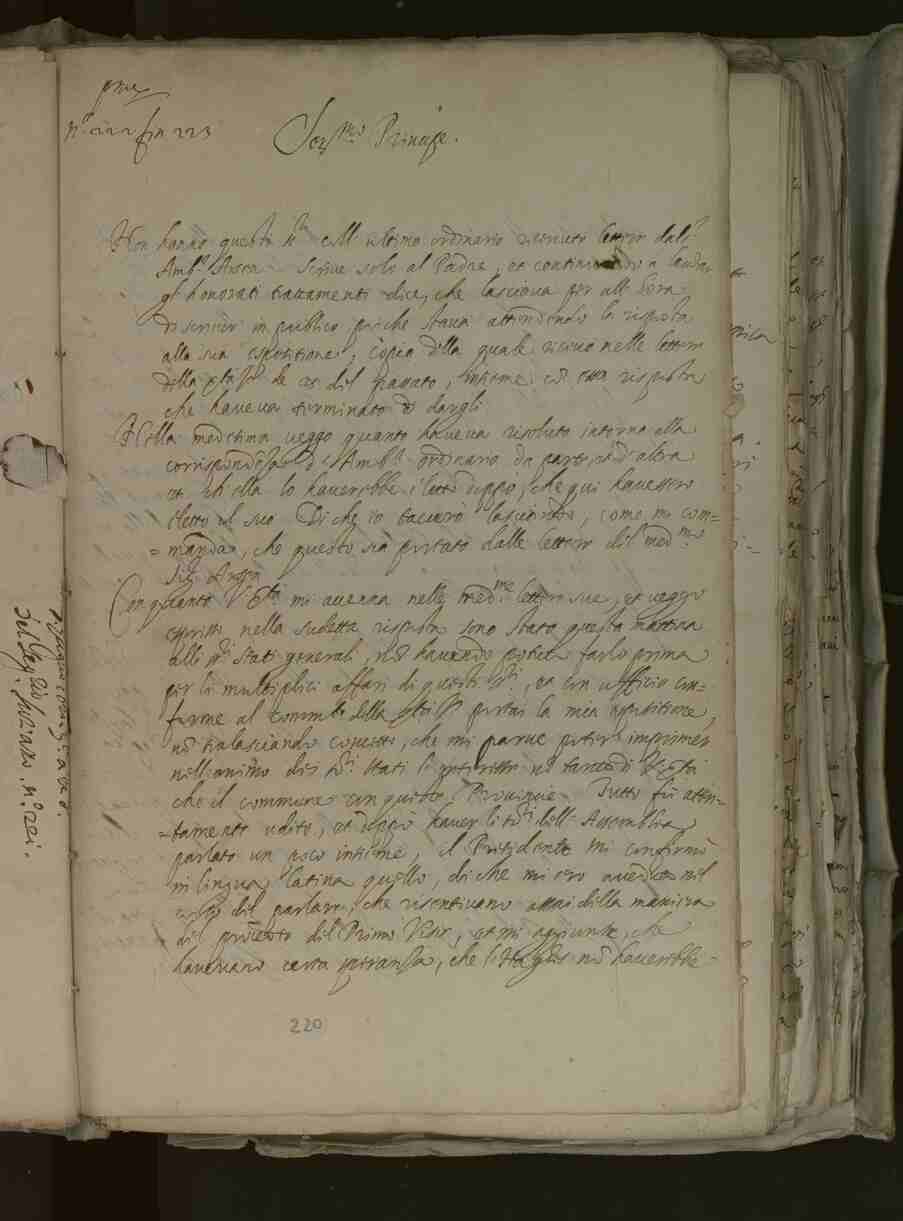 prima
n.o 222 fin 223
Ser.mo Principe.
Non hanno questi s.ri coll'ultimo ordinario ricevuto lettere dall'
Amb.r Arsen scrive solo al Padre, et continuando a laudar
gl'honorati trattamenti dice, che lasciava per all'hora
di scriver in publico perche stava attendendo la risposta
alla sua espositione, copia della quale ricevo nelle lettere
della S.tà V. de 25 del passato, insieme con la risposta
che haveva terminato di dargli
Nella medesima veggo quanto haveva risoluto intorno alla
corrispondenza d'Amb.r ordinario da parte, et d'altra
et ch'ella lo haverebbe eletto doppo, che qui havessero
eletto il suo Di che io tacerò lasciando, come mi com=
=manda, che questo sia portato dalle lettere del med.mo
Sig. Arsen
Con quanto V. S.tà mi accenna nelle med.me lettere sue, et veggo
espresso nella sudetta risposta sono stato questa mattina
alli s.ri Stati generali, non havendo potuto farlo prima
per li multiplici affari di questi s.ri, et con ufficio con=
forme al comm.to della S.tà V. portai la mia espositione,
non tralasciando concetto, che mi parve poter imprimer
nell'animo dei s.ri Stati l'interesse non tanto di V. S.tà
che il commune con queste Provincie. Tutto fù atten=
=tamente udito, et doppò haver li s.ri dell'Assemblea
parlato un poco insieme, il Presidente mi confirmò
in lingua latina quello, di che mi ero aveduto nel
corso del parlare, che risentivano assai della maniera
del procieder del Primo Visir, et mi aggiunse, che
havevano certa speranza, che l'Haghe non haverebbe=
220